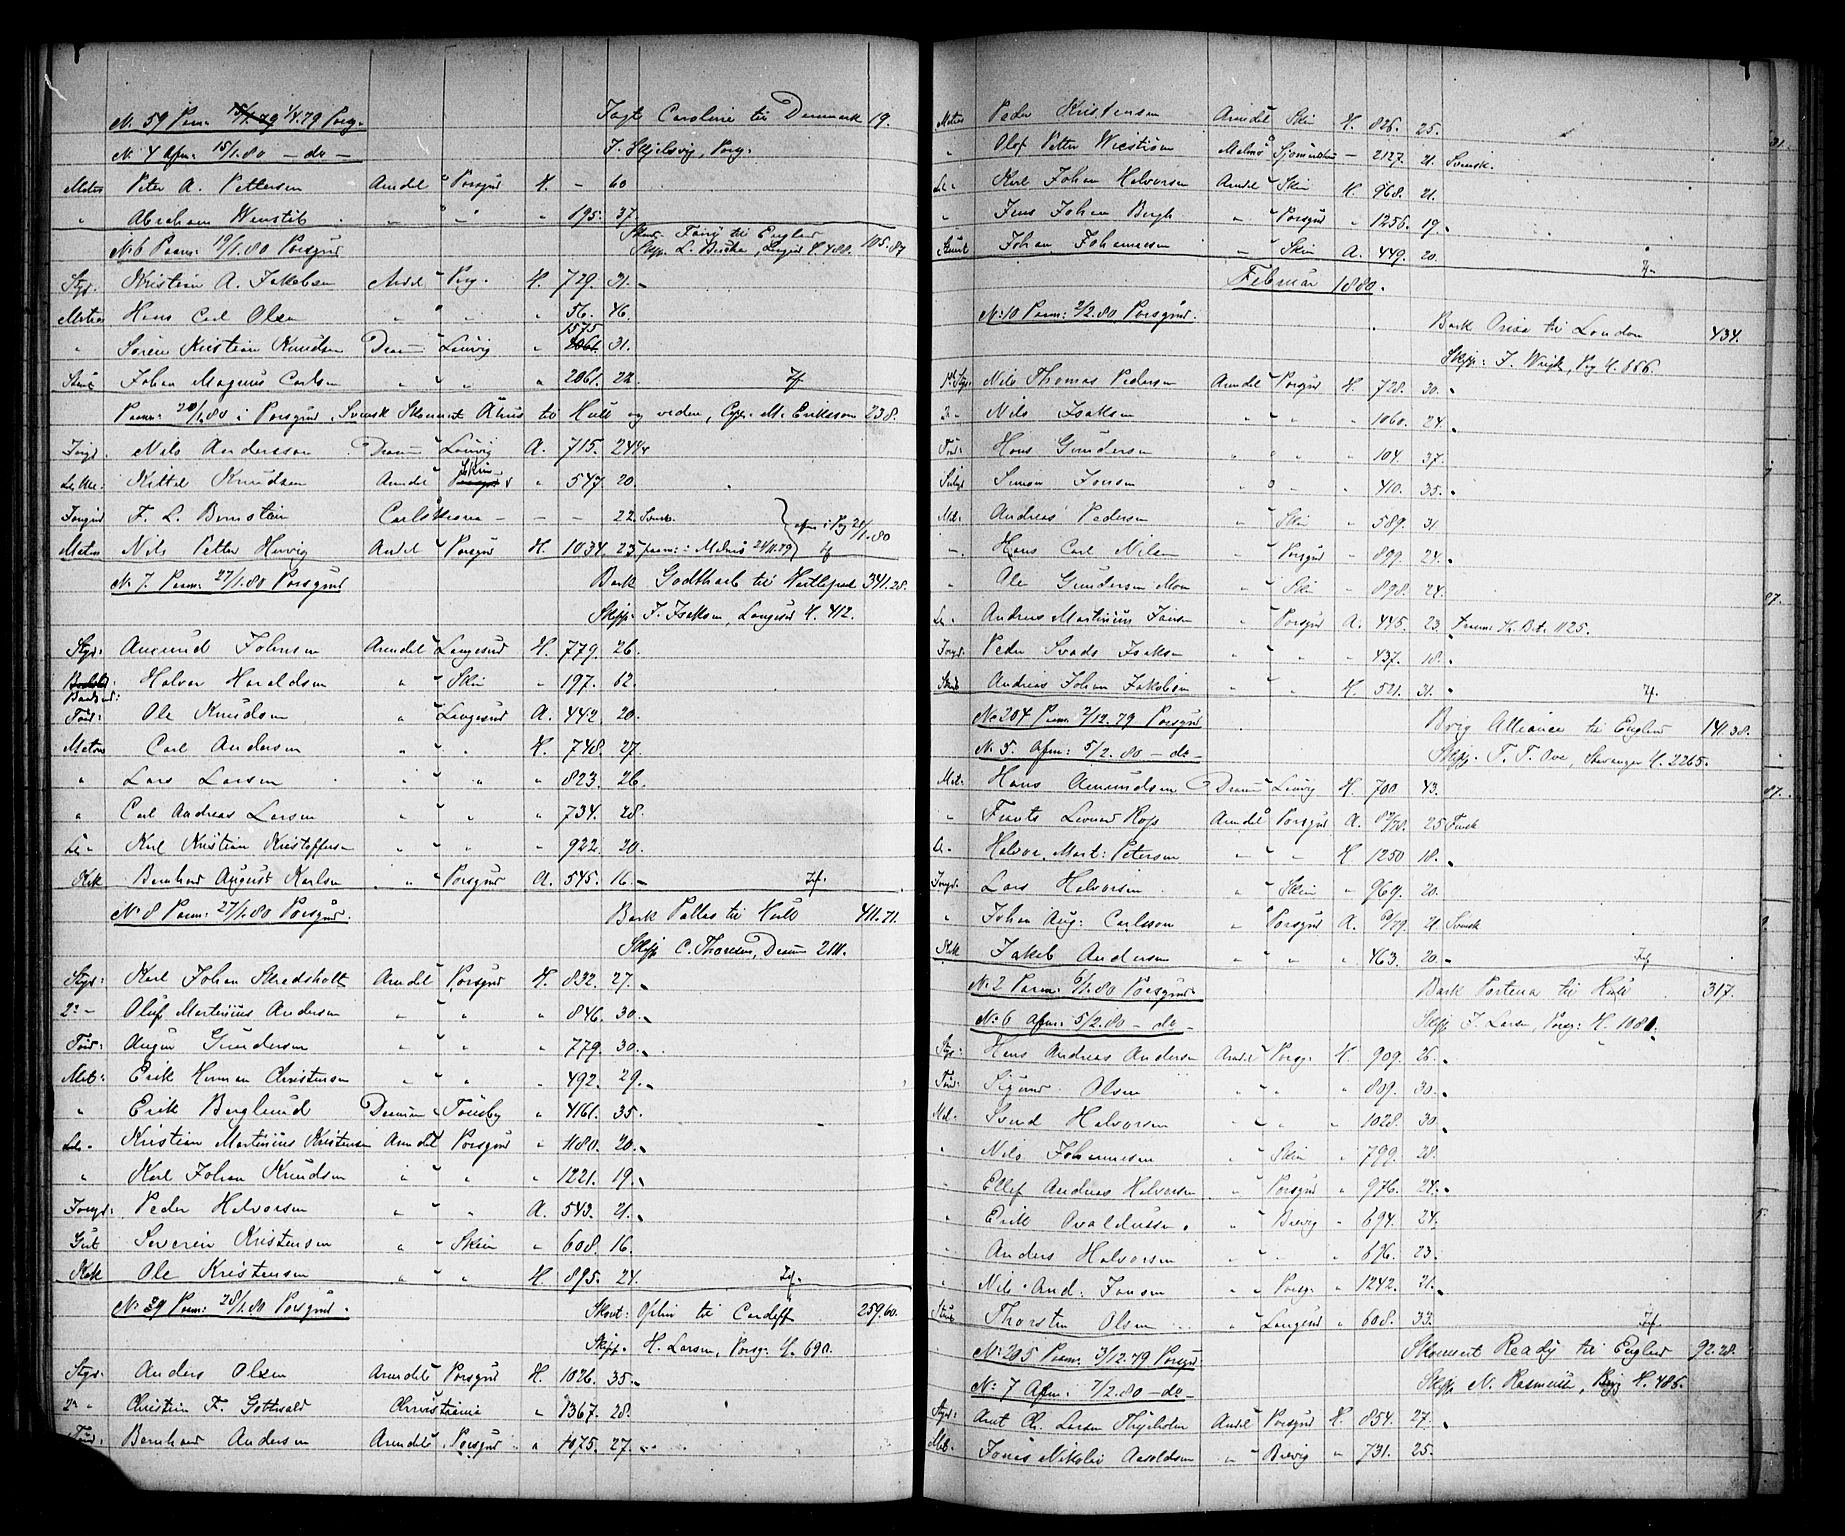 No 59 Paam: 15/1.79 1/4.79 Porsg. Jagt Caroline til Danmark 19.
No 4 Afm: 15/1.80 – do – J. Skjelsvig, Porsg.
Matros Peter A. Pettersen Arendal " Porsgrd H. – 60
" Abraham Wenstöb " " " " 195. 37.
No 6 Paam: 19/1.80 Porsgrd Skon: Fairy til England 105.87
Skpp. L. Bucha, Langsd H. 488.
Styr. Kristian A. Jakobsen Ardl " Porsg. H. 729. 31.
Matros Hans Carl Olsen " " " " 56. 46.
" Søren Kristian Knudsen Dram " Laurvig " 1575 2061 31.
Stuert Johan Magnus Carlsen " " " " 2061. 22. Zf
Paam: 20/1.80 i Porsgrd. Svensk Skonnert Ahus til Hull og videre, Cap. M. Eriksson 238.
Jungd. Nils Andersson Dram " Laurvig A. 715. 24 1/4
Le Ma. Kittil Knudsen Arendal " Skien Porsgrd " 547. 20.
Jungmd F. L. Bernstein Carlskrona – – – 22. Svensk.
afm: i Porsg 21/1.80
Matros Nils Petter Herwig Ardl " Porsgrd H. 1034. 23 paam: i Malmö 24/11.79 Zf
No 7. Paam: 27/1.80 Porsgrund Bark Godthaab til Hartlepool 341.28.
Skpp. J. Isaksen, Langesund H. 412.
Styr: Amund Johnsen Arendal " Langesund H. 779. 26.
Baadsmd: Halvor Haraldsen " " Skien " 197. 62.
Tømd: Ole Knudsen " " Langesund A. 442. 20.
Matros Carl Andersen " " " H. 748. 27.
" Lars Larsen " " " " 823. 26.
" Carl Andreas Larsen " " " " 734. 28.
Le " Karl Kristian Kristoffersen " " " " 922. 20.
Kok Bernhard August Karlsen " " Porsgrund A. 545. 16. Zf.
No 8 Paam: 27/1.80 Porsgrd. Bark Pallas til Hull 411.71.
Skpp C. Thoresen, Dram 2111.
Styr: Karl Johan Skredsholt Arendal " Porsgrd H. 832. 27.
2n – Oluf Martinius Andersen " " " " 846. 30.
Tømd: August Gundersen " " " " 779. 30.
Mat: Erik Herman Christensen " " " " 492. 29.
" Erik Berglund Dramm " Tønsbg " 4161. 35.
Le " Kristian Martinius Kristensen Arendal Porsgrd " 1180. 20.
" Karl Johan Knudsen " " " " 1221. 19.
Jungd: Peder Halvorsen " " " A. 543. 21.
Gut Severin Kristensen " " Skien " 608. 16.
Kok Ole Kristensen " " " H 895. 24. Zf.
No 9 Paam: 28/1.80 Porsgrund. Skont: Ophir til Cardiff 259.60.
Skpp. H. Larsen, Porsg: H. 690.
Styr Anders Olsen Arendal " Porsgrd H. 1026. 35.
2n " Christian F. Gottwald Christiania " 1367. 28.
Tømd: Bernhard Andersen Arendal " Porsgrd " 1075. 27.
Matros Peder Kristensen Arendal Skien H. 826. 25.
" Olof Petter Wiestrøm Malmø Sjömanshus – 2127. 21. Svensk.
Le " Karl Johan Halvorsen Arendal " Skien H. 968. 21.
" Jens Johan Bergh " " Porsgrd " 1256. 19.
Stuert Johan Johannesen " " Skien A. 449. 20. Zf.
Februar 1880.
No 10 Paam: 2/2.80 Porsgrund. Bark Orixa til London 434.
Skpp: J. Wright, Porsg H. 666.
1ste Styr: Nils Thomas Pedersen Arendal " Porsgrd H. 728. 30.
2n " Nils Isaksen " " " " 1060. 24.
Tømd: Hans Gundersen " " " " 104. 37.
Seilmd Simon Jonsen " " " " 410. 35.
Mat: Andreas Pedersen " " Skien " 589. 31
" Hans Carl Nilsen " " Porsgrd " 899. 24.
" Ole Gundersen Moen " " Skien " 898. 24.
Le " Andreas Martinius Jansen " " Porsgrd A. 445. 23. Fram: Kr. B.t. 1125.
Jungd. Peder Svads Isaksen " " " " 437. 18.
Stuert Andreas Johan Jakobsen " " " H 521. 31. Zf.
No 204 Paam: 2/12.79 Porsgrd Brig Alliance til England 141.38.
No 5. Afm: 5/2.80 – do – Skpp. T. T. Ove, Stavanger H. 2265.
Mat: Hans Amundsen Dram " Laurvig H 700 43.
" Frants Leonard Rops Arendal " Porsgrd A. 25 Finsk
Le. Halvor Mart: Petersen " " " H 1250 18.
Jungd. Lars Halvorsen " " Skien " 969. 20.
" Johan Aug: Carlsson " " Porsgrd A. 21. Svensk
Kok Jakob Andersen " " " " 463. 20. Zf
No 2 Paam: 6/1.80 Porsgrund. Bark Portena til Hull 317.
No 6 Afm: 5/2.80 – do – Skpp J. Larsen, Porsg: H. 1081.
Styr: Hans Andreas Andersen Arendal " Porsg. H. 909. 26.
Tømd: Sigurd Olsen " " " " 809. 30.
Mat. Svend Halvorsen " " " " 1028. 30.
" Nils Johannesen " " Skien " 799. 28.
" Ellef Andreas Halvorsen " " Porsgrd " 976. 24.
" Erik Osvaldussen. " " Brevig " 694. 24.
" Anders Halvorsen " " " " 676. 23.
" Nils And: Jonsen " " Porsg. " 1242. 21.
Stuert Thorsten Olsen " " Langesund " 608. 33. Zf
No 205 Paam: 3/12.79 Porsgd Skonnert Ready til England 92.28.
No 7 Afm: 7/2.80 – do – Skpp N. Rasmussen, Brvg H. 485.
Styr: Amt Ch. Larsen Thyeholm Arendal " Porsgrd H. 854. 27.
Mat. Jonas Nikolai Aaroldsen " " Brevig " 731. 25.